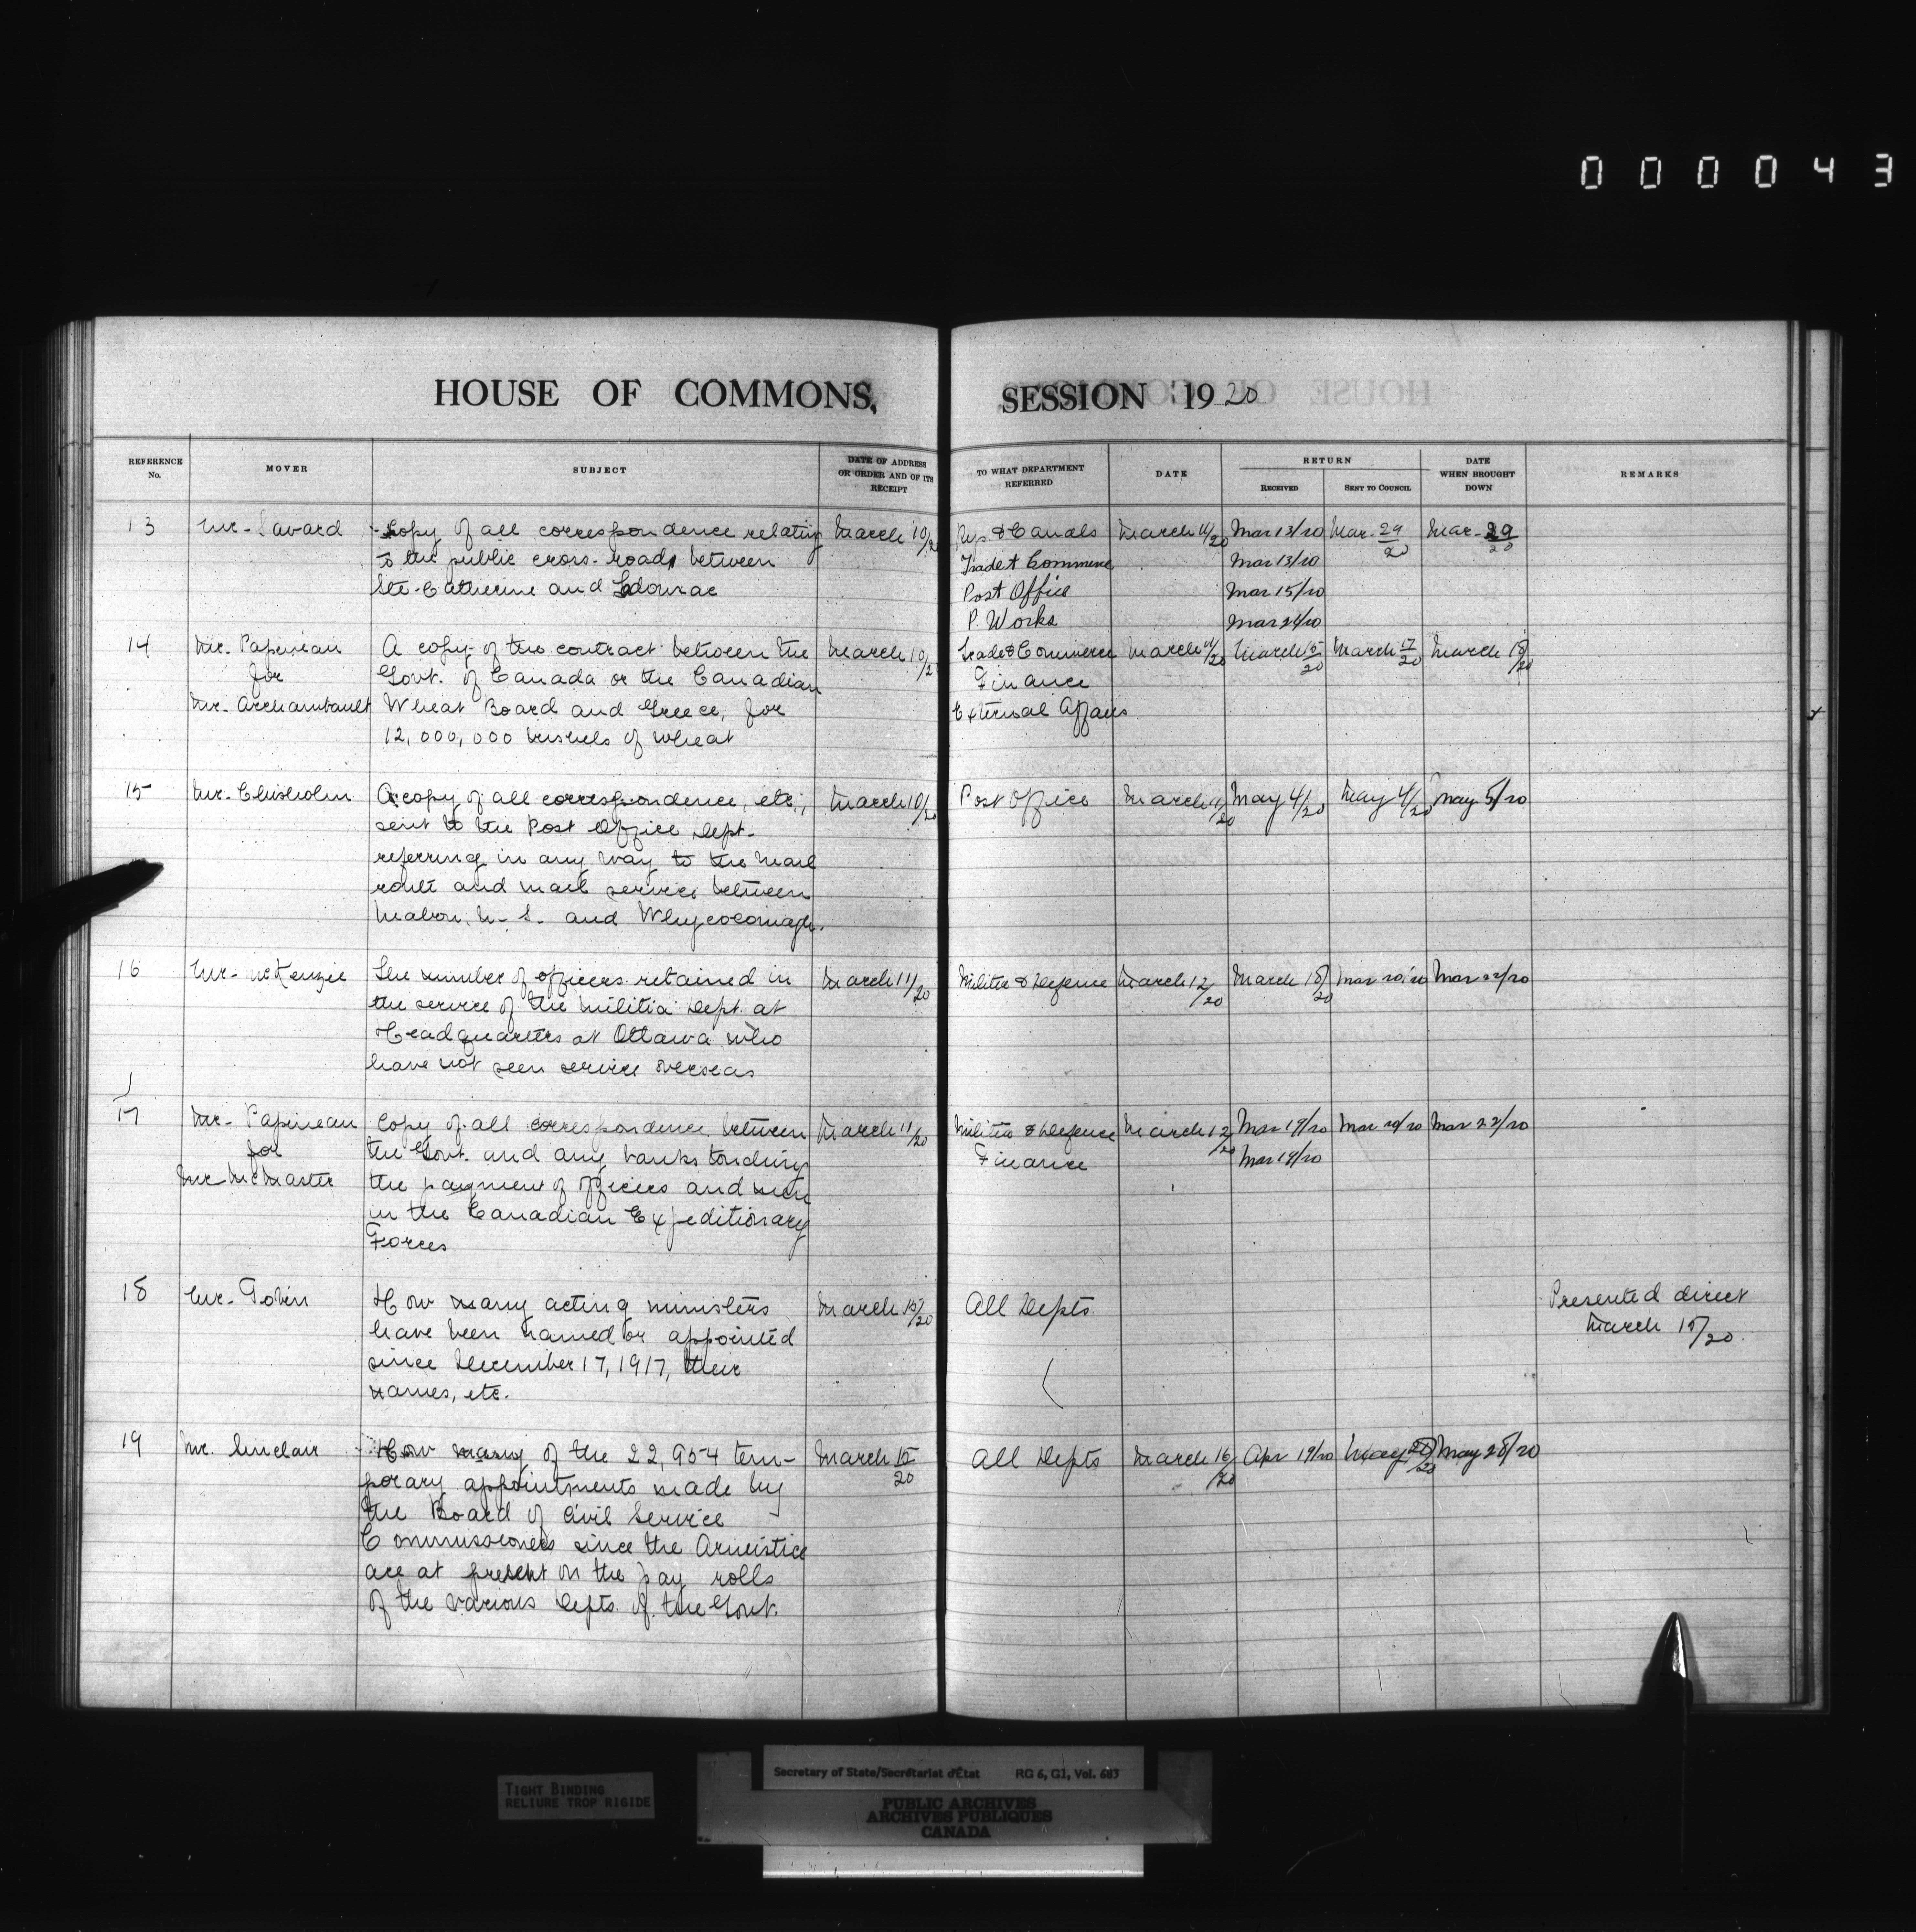 000043
HOUSE OF COMMONS, SESSION 1920
REFERENCE No. MOVER SUBJECT DATE OF ADDRESS OR ORDER AND OF ITS RECEIPT TO WHAT DEPARTMENT REFERRED DATE RETURN RECEIVED SENT TO COUNCIL DATE WHEN BROUGHT DOWN REMARKS
13 Mr. Savard Copy of all correspondence relating March 10/20 Rys. & Canals March 11/20 Mar 13/20 Mar. 29/20 Mar. 29/20
to the public cross-roads between Trade & Commerce Mar 13/20
Ste. Catherine and Post Office Mar 15/20
P. Works Mar 24/20
14 Mr. Papineau A copy of the contract between the March 10/20 Trade & Commerce March 11/20 March 15/20 March 17/20 March 18/20
for Govt. of Canada or the Canadian Finance
Mr. Archambault Wheat Board and Greece, for External Affairs
12,000,000 bushels of wheat
15 Mr. Chisholm A copy of all correspondence, etc., March 10/20 Post Office March 11/20 May 4/20 May 4/20 May 5/20
sent to the Post Office Dept.
referring in any way to the mail
route and mail service between
Mabou, N. S. and Whycocomagh.
16 Mr. McKenzie The number of officers retained in March 11/20 Militia & Defence March 12/20 March 18/20 Mar 20/20 Mar 22/20
the service of the Militia Dept. at
Headquarters at Ottawa who
have not seen service overseas
17 Mr. Papineau Copy of all correspondence between March 11/20 Militia & Defence March 12/20 Mar 19/20 Mar 20/20 Mar 22/20
for the Govt. and any banks touching Finance Mar 19/20
Mr McMaster the payment of officers and men
in the Canadian Expeditionary
Forces
18 Mr. Tobin How many acting ministers March 15/20 All Depts. Presented direct
have been named or appointed March 15/20.
since December 17, 1917, their
names, etc.
19 Mr. Sinclair How many of the 22,954 tem- March 15/20 All Depts March 16/20 Apr 19/20 May 20/20 May 28/20
porary appointments made by
the Board of Civil Service
Commissioners since the Armistice
are at present on the pay rolls
of the various Depts. of the Govt.
TIGHT BINDING
RELIURE TROP RIGIDE
Secretary of State/Secrétariat d'État RG 6, G1, Vol. 603
PUBLIC ARCHIVES
ARCHIVES PUBLIQUES
CANADA